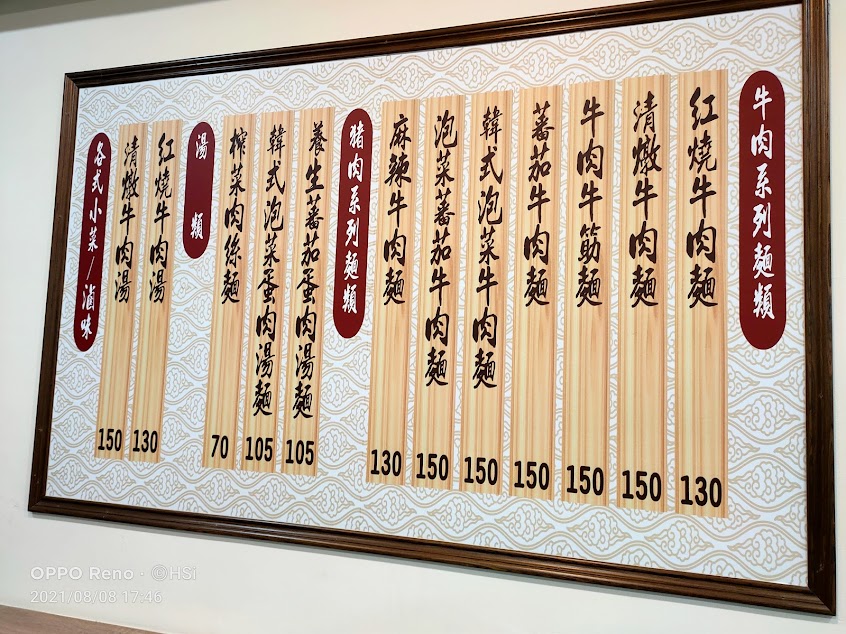 牛肉系列麵類
紅燒牛肉麵 130
清燉牛肉麵 150
牛肉牛筋麵 150
蕃茄牛肉麵 150
韓式泡菜牛肉麵 150
泡菜蕃茄牛肉麵 150
麻辣牛肉麵 130
豬肉系列麵類
養生蕃茄蛋肉湯麵 105
韓式泡菜蛋肉湯麵 105
榨菜肉絲麵 70
湯類
紅燒牛肉湯 130
清燉牛肉湯 150
各式小菜/滷味
OPPO Reno · @HSi
2021/08/08 17:46